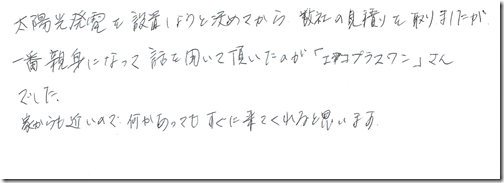 太陽光発電を設置しようと決めてから、数社の見積りを取りましたが
一番親身になって話を聞いて頂いたのが「エコプラスワン」さん
でした。
家からも近いので、何かあってもすぐに来てくれると思います。